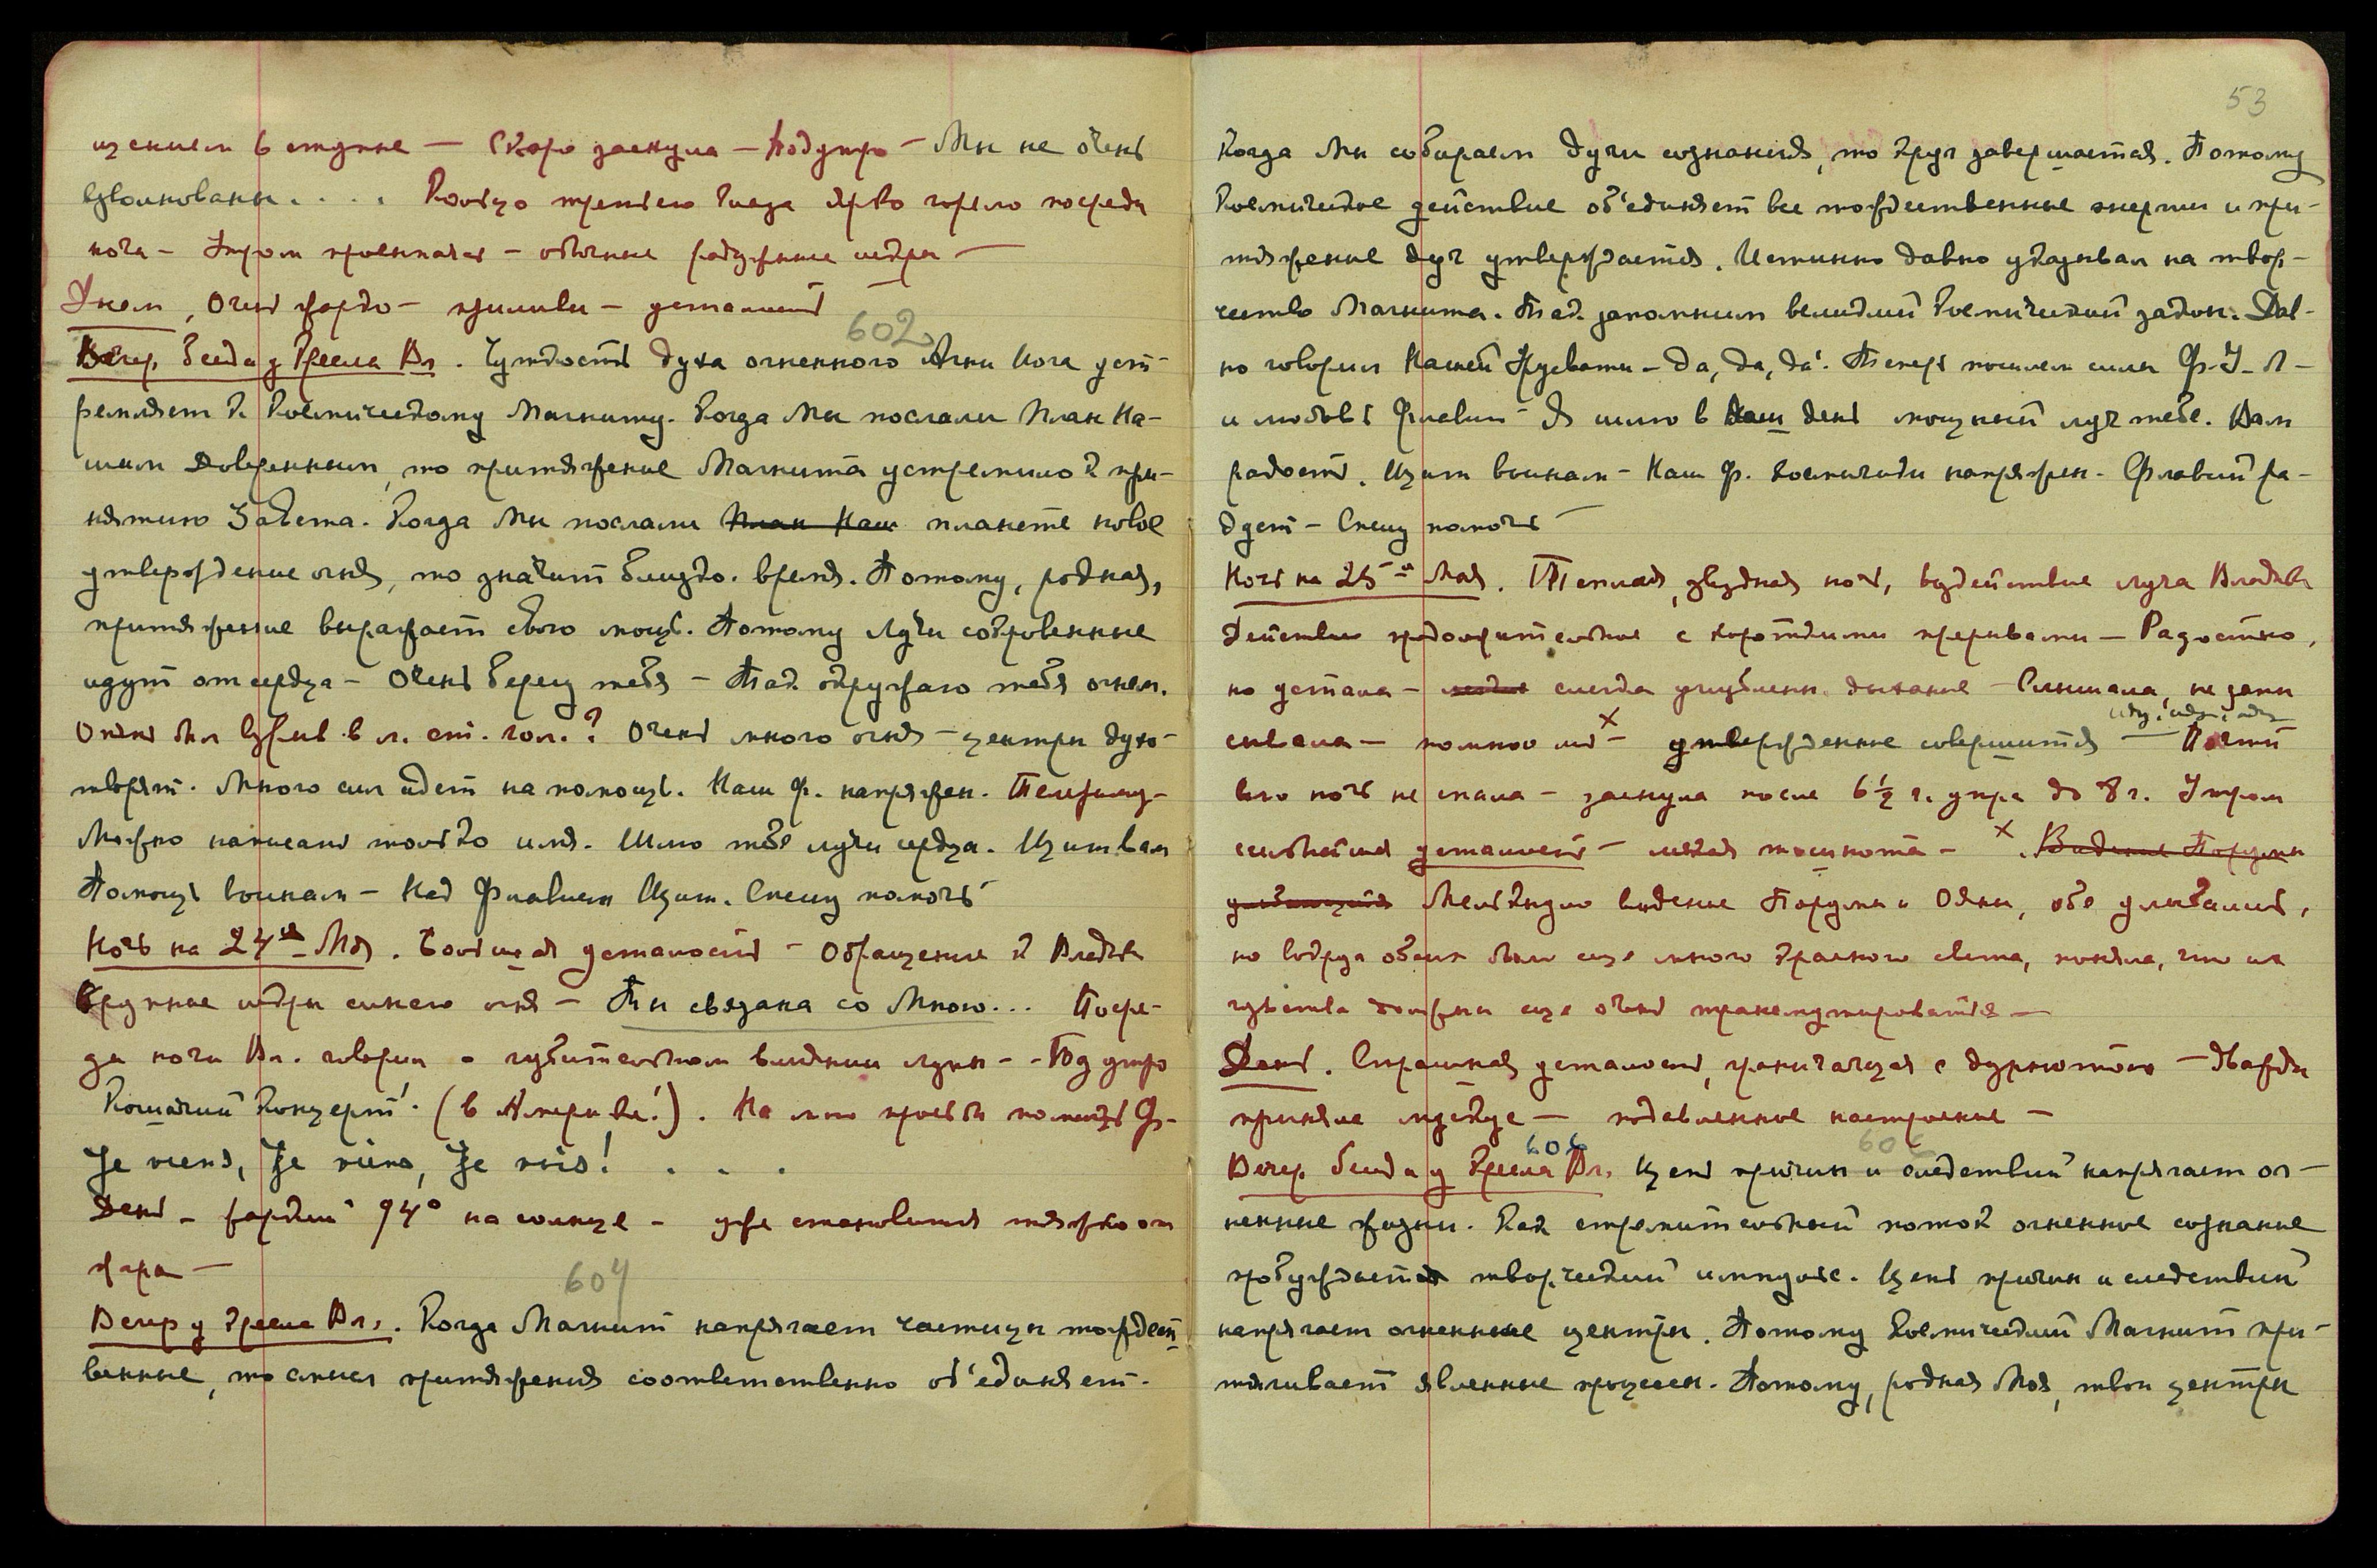 щением в ступне — Скоро заснула — Подутро — Мы не очень
взволнованы. . . . Кольцо третьего глаза ярко горело посреди
ночи — Утром проснулась — обычные радужные искры —
Днем, Очень жарко — приливы — усталость
602
Вечер. беседа у кресла Вл. Чуткость духа огненного Агни Йога уст-
ремляет к Космическому Магниту. Когда Мы послали План На-
шим Доверенным, то притяжение Магнита устремило к при-
нятию Завета. Когда Мы послали План Наш планете новое
утверждение огня, то значит близко. время. Потому, родная,
притяжение выражает свою мощь. Потому Лучи сокровенные
идут от сердца — Очень берегу тебя — Так окружаю тебя огнем.
Отчего был взрыв в л. ст. гол.? Очень много огня — центры духо-
творят. Много сил идет на помощь. Наш Ф. напряжен. Телеграму-
Можно написать только имя. Шлю тебе лучи сердца. Щит вам
Помощь воинам — Над Флавием Щит. Спешу помочь —
Ночь на 24ое Мая. Большая усталость — Обращение к Владыке
Крупные искры синего огня — Ты связана со Мною... Посре-
ди ночи Вл. говорил о губительном влиянии луны — - Под утро
Кошачий Концерт! (в Америке!). На мою просьбу помощь Ф.-
Je viens, Je viens, Je vais! . . .
День — жаркий 94° на солнце — уже становится тяжко от
жары —
604
Вечер у кресла Вл. Когда Магнит напрягает частицы тождест-
венные, то смысл притяжения соответственно об'единяет.
53
Когда Мы собираем духи сознания, то круг завершается. Потому
Космическое действие об'единяет все тождественные энергии и при-
тяжение дух утверждается. Истинно давно указывал на твор-
чество Магнита. Так запомним великий Космический закон. Дав-
но говорил Нашей Урусвати — да, да, да! Теперь пошлем силы Ф. У. Л —
и любовь Флавий — Я шлю в Наш день мощный луч тебе. Вам
радость. Щит воинам — Наш Ф. космически напряжен. Флавий ра-
дует — Спешу помочь —
Ночь на 25ое Мая. Теплая, звездная ночь, воздействие луча Владыки
Действие продолжительное с короткими перерывами — Радостно,
но устала — слегка углублен. дыхание — Слышала, не запи
иду, иду, иду
сывала — помною лишь × — утверждение совершится — Почти
всю ночь не спала — заснула после 6½ ч. утра до 8 ч. Утром
сильнейшая усталость — легкая тошнота — × . Видение Порумы
улыбающейся Мелькнуло видение Порумы и Ояны, обе улыбались,
но вокруг обеих было еще много красного света, поняла, что их
чувства должны еще очень трансмутироваться —
День. Страшная усталость, граничащая с дурнотою — дважды
приняла мускус — подавленное настроение —
606 606
Вечер беседа у кресла Вл. Цепь причин и следствий напрягает ог-
ненные жизни. Как стремительный поток огненное сознание
пробуждает творческий импульс. Цепь причин и следствий
напрягает огненные центры. Потому Космический Магнит при-
тягивает явленные процессы. Потому, родная Моя, твои центры